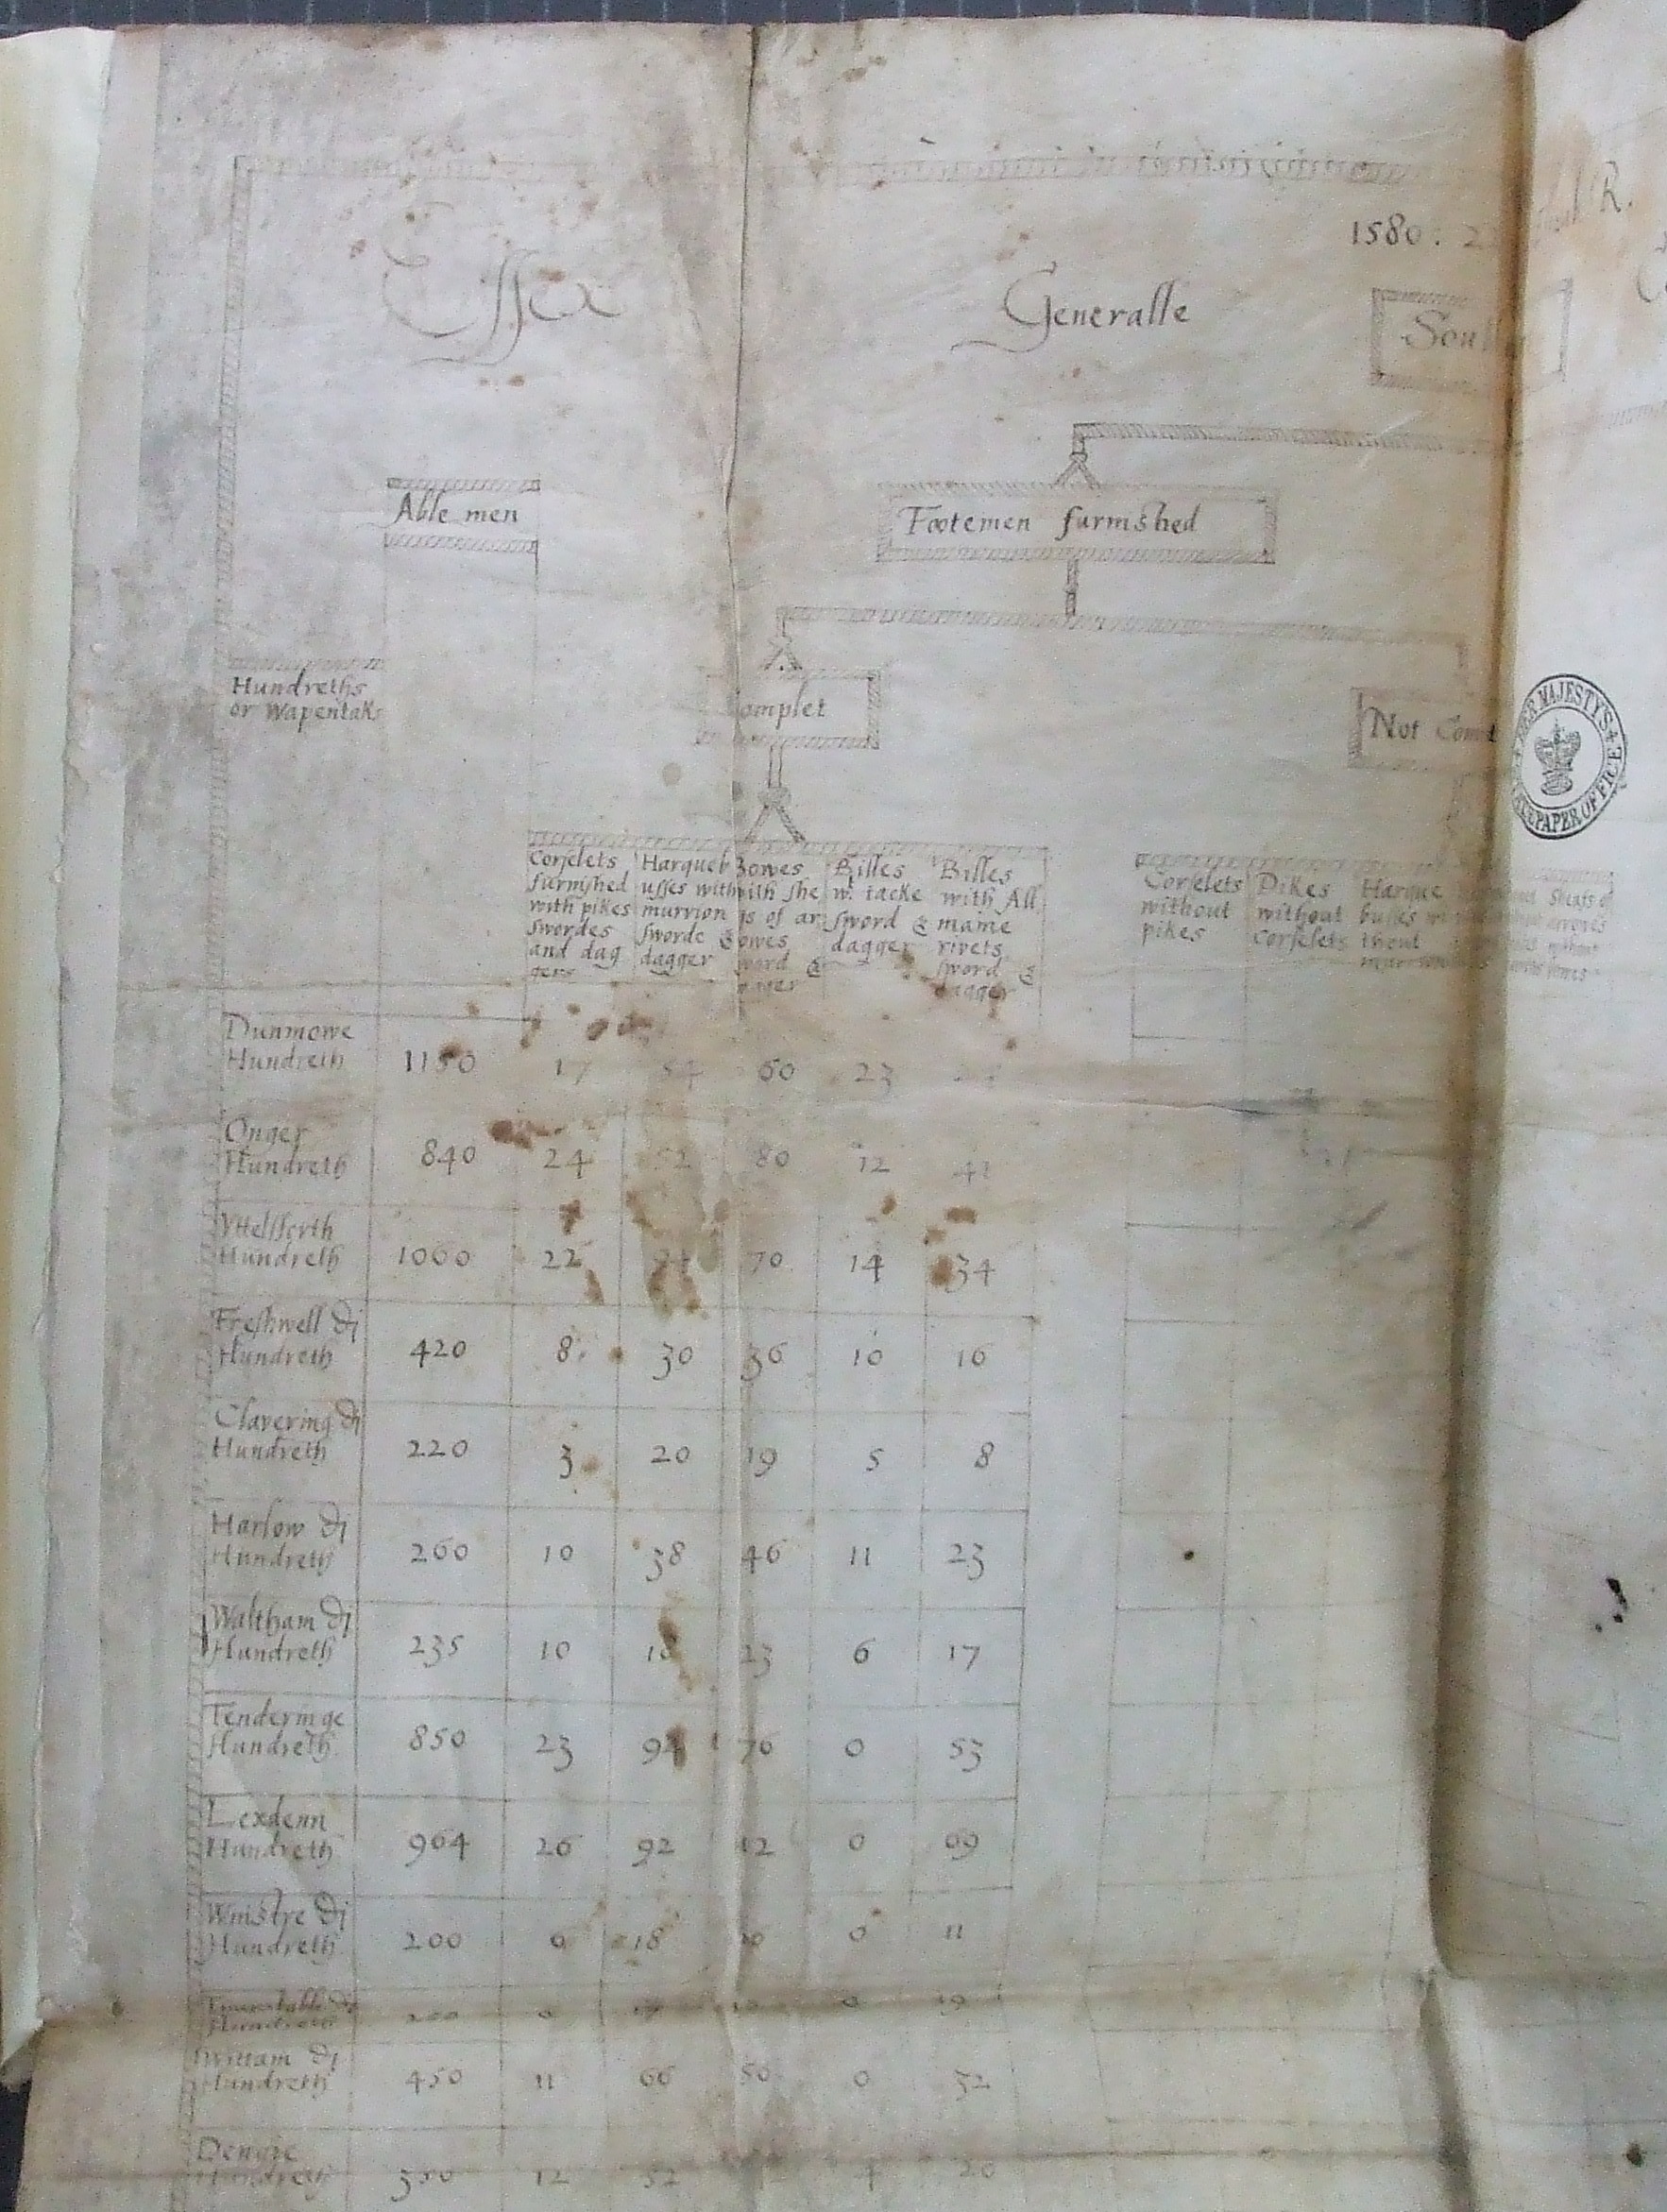 1580.
Essex
Generalle
Able men
Footemen furnished
Hundreths
or Wapentaks
omplet
Not Com
Corselets
furnished
with pikes
swordes
and dag
gers
Harqueb
usses with
murrion
sworde &
dagger
bowes
with she
is of ar
owes
word &
Billes
wt. iacke
sword &
dagger
Billes
with All
maine
rivets
sword &
dagger
Corselets
without
pikes
Pikes
without
Corselets
Harque
busses wi
thout
HER MAJESTY'S
PAPER OFFICE
Dunmowe
Hundreth 1150 17 54 60 23
Onger
Hundreth 840 24 52 80 12
Hundreth 1060 22 70 14 34
Freshwell di
Hundreth 420 8 30 36 10 16
Clavering di
Hundreth 220 3 20 19 5 8
Harlow di
Hundreth 260 10 38 46 11 23
Waltham di
Hundreth 235 10 18 23 6 17
Tenderinge
Hundreth 850 23 94 70 0 53
Lexdenn
Hundreth 964 26 92 12 0 69
Winstre di
Hundreth 200 6 18 0 11
Hundreth 200 0 19
Wittam di
Hundreth 450 11 66 50 0 32
Dengie
Hundreth 550 12 52 20